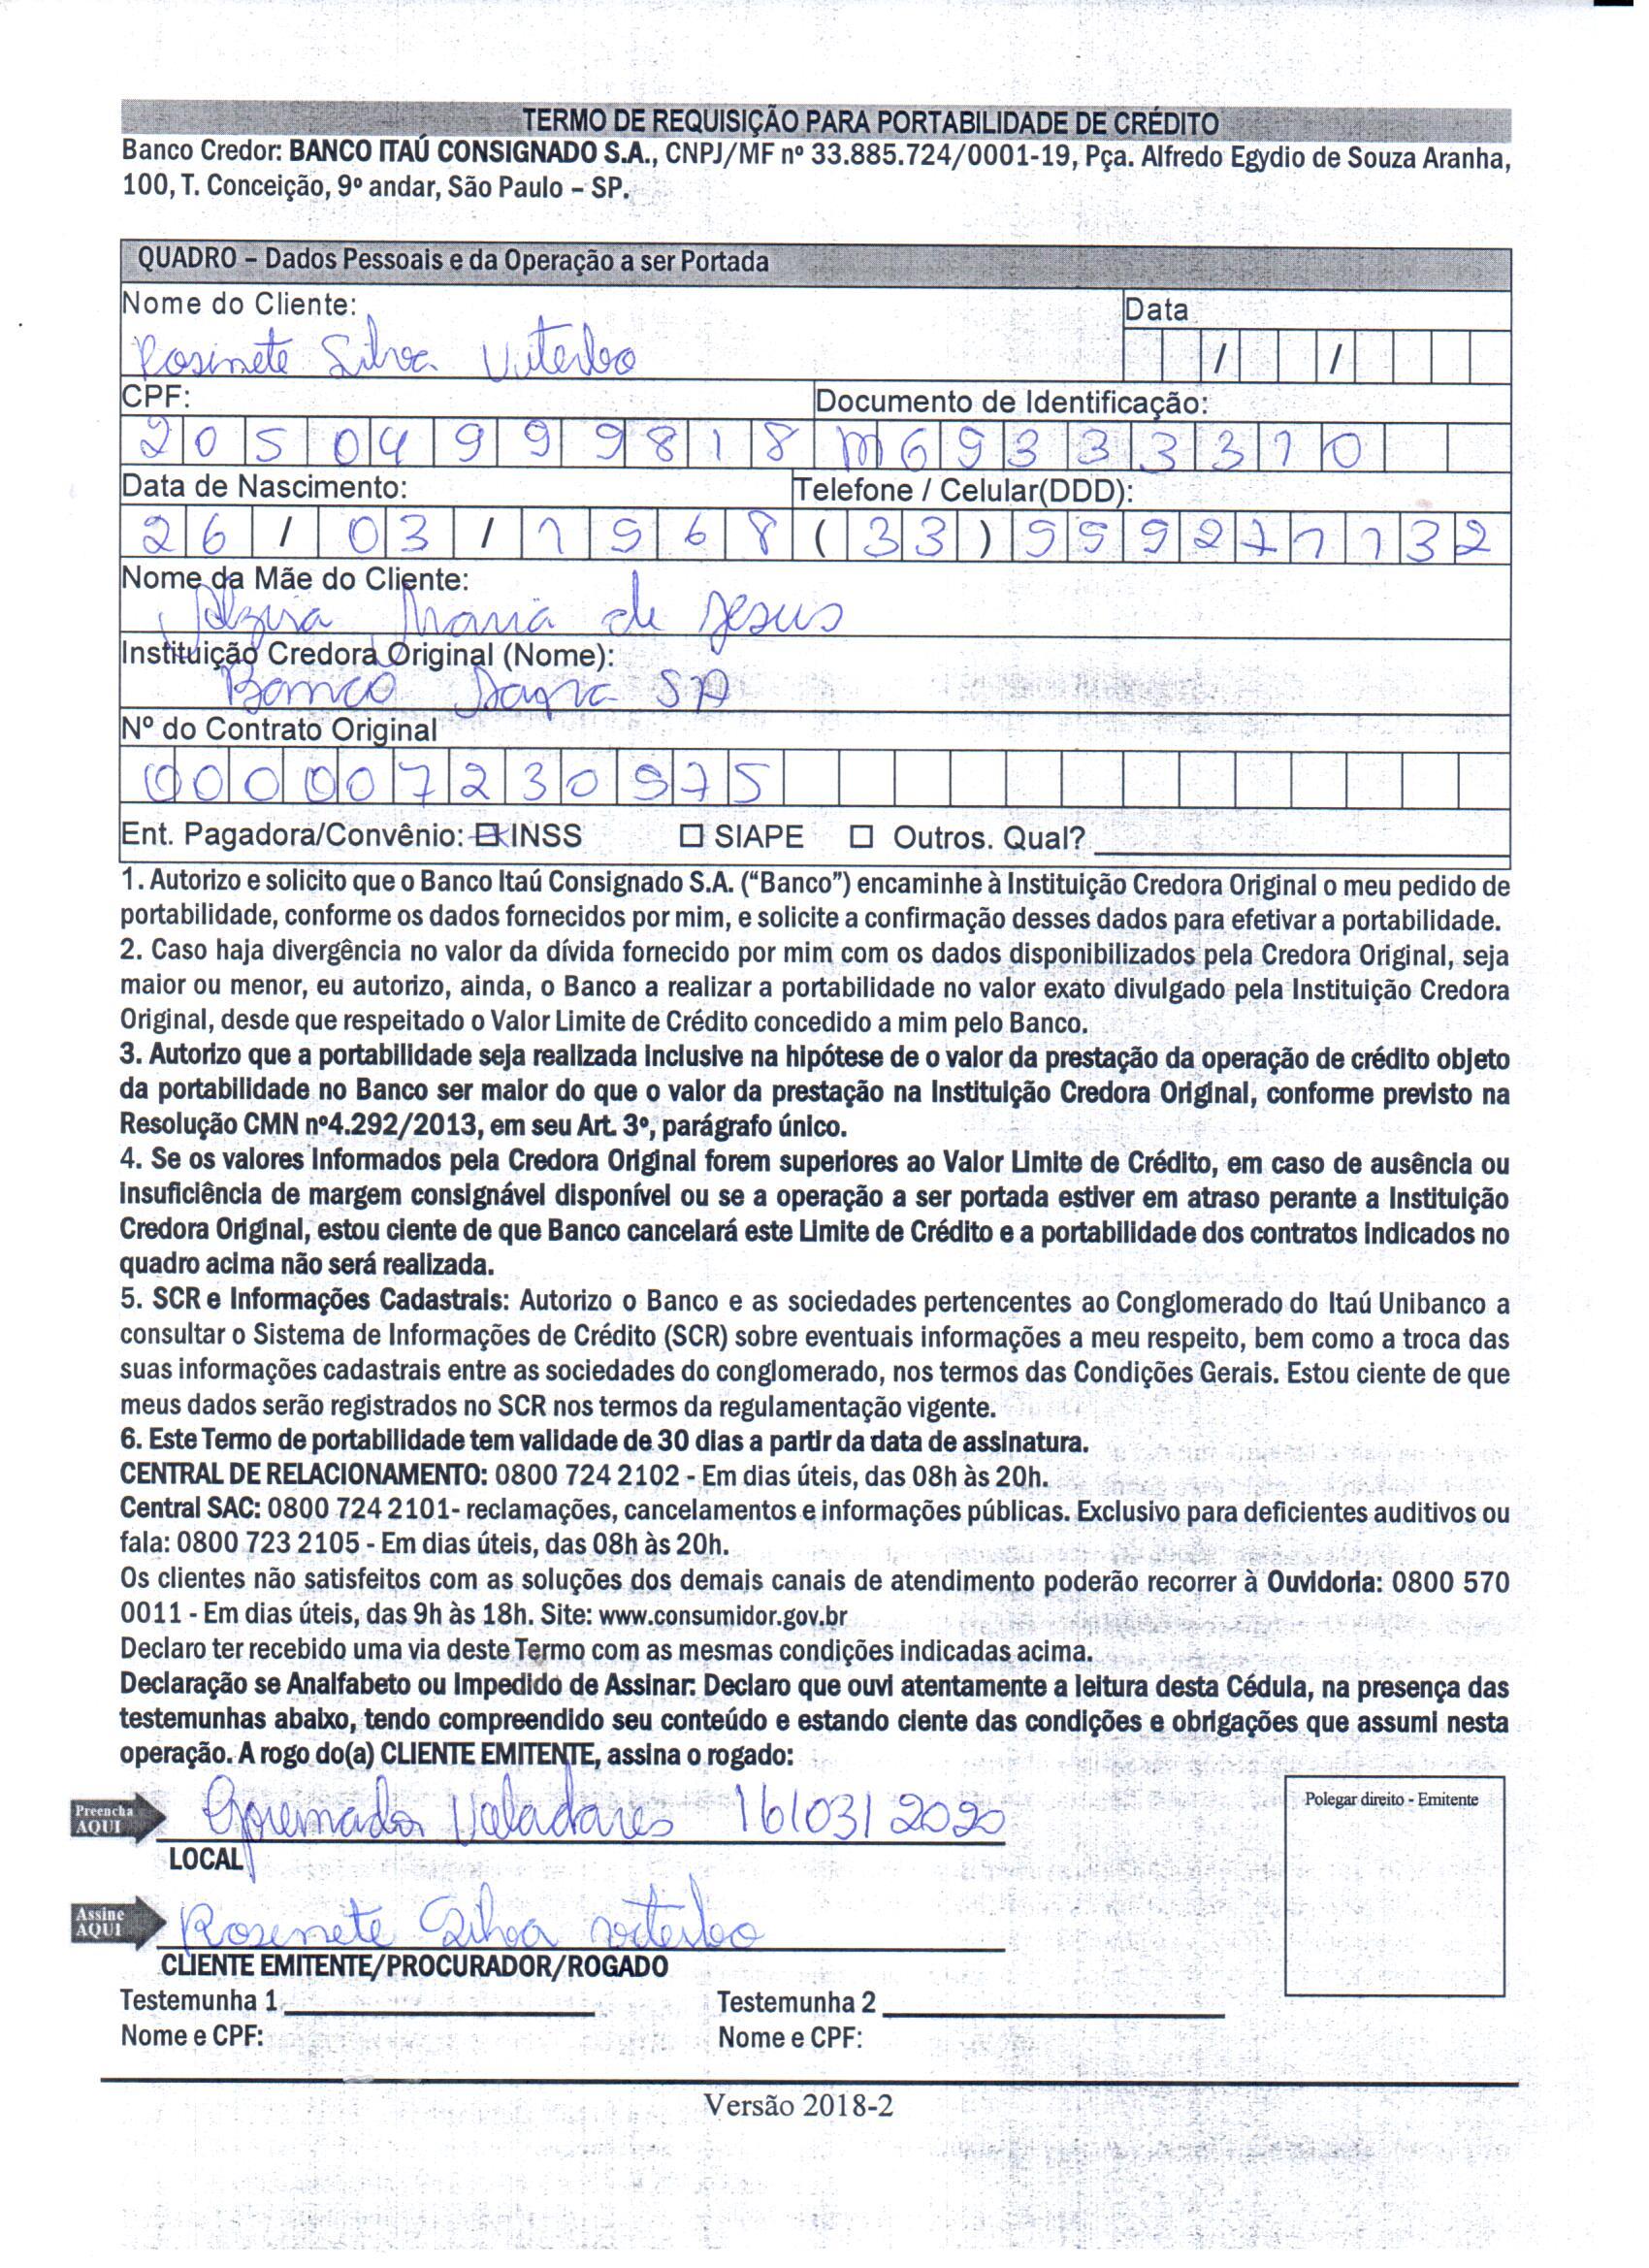 TERMO DE REQUISIÇÃO PARA PORTABILIDADE DE CRÉDITO
Banco Credor: BANCO ITAÚ CONSIGNADO S.A., CNPJ/MF nº 33.885.724/0001-19, Pça. Alfredo Egydio de Souza Aranha,
100, T. Conceição, 9º andar, São Paulo – SP.
QUADRO – Dados Pessoais e da Operação a ser Portada
Nome do Cliente: Data
Rosinete Silva Viterbo / /
CPF: Documento de Identificação:
20504999818 M69333310
Data de Nascimento: Telefone / Celular(DDD):
26 / 03 / 1968 (33) 999271132
Nome da Mãe do Cliente:
Alzira Maria de Jesus
Instituição Credora Original (Nome):
Banco Safra SA
Nº do Contrato Original
000007230975
Ent. Pagadora/Convênio: ☒ INSS ☐ SIAPE ☐ Outros. Qual?
1. Autorizo e solicito que o Banco Itaú Consignado S.A. (“Banco”) encaminhe à Instituição Credora Original o meu pedido de
portabilidade, conforme os dados fornecidos por mim, e solicite a confirmação desses dados para efetivar a portabilidade.
2. Caso haja divergência no valor da dívida fornecido por mim com os dados disponibilizados pela Credora Original, seja
maior ou menor, eu autorizo, ainda, o Banco a realizar a portabilidade no valor exato divulgado pela Instituição Credora
Original, desde que respeitado o Valor Limite de Crédito concedido a mim pelo Banco.
3. Autorizo que a portabilidade seja realizada inclusive na hipótese de o valor da prestação da operação de crédito objeto
da portabilidade no Banco ser maior do que o valor da prestação na Instituição Credora Original, conforme previsto na
Resolução CMN nº4.292/2013, em seu Art. 3º, parágrafo único.
4. Se os valores informados pela Credora Original forem superiores ao Valor Limite de Crédito, em caso de ausência ou
insuficiência de margem consignável disponível ou se a operação a ser portada estiver em atraso perante a Instituição
Credora Original, estou ciente de que Banco cancelará este Limite de Crédito e a portabilidade dos contratos indicados no
quadro acima não será realizada.
5. SCR e Informações Cadastrais: Autorizo o Banco e as sociedades pertencentes ao Conglomerado do Itaú Unibanco a
consultar o Sistema de Informações de Crédito (SCR) sobre eventuais informações a meu respeito, bem como a troca das
suas informações cadastrais entre as sociedades do conglomerado, nos termos das Condições Gerais. Estou ciente de que
meus dados serão registrados no SCR nos termos da regulamentação vigente.
6. Este Termo de portabilidade tem validade de 30 dias a partir da data de assinatura.
CENTRAL DE RELACIONAMENTO: 0800 724 2102 - Em dias úteis, das 08h às 20h.
Central SAC: 0800 724 2101- reclamações, cancelamentos e informações públicas. Exclusivo para deficientes auditivos ou
fala: 0800 723 2105 - Em dias úteis, das 08h às 20h.
Os clientes não satisfeitos com as soluções dos demais canais de atendimento poderão recorrer à Ouvidoria: 0800 570
0011 - Em dias úteis, das 9h às 18h. Site: www.consumidor.gov.br
Declaro ter recebido uma via deste Termo com as mesmas condições indicadas acima.
Declaração se Analfabeto ou Impedido de Assinar: Declaro que ouvi atentamente a leitura desta Cédula, na presença das
testemunhas abaixo, tendo compreendido seu conteúdo e estando ciente das condições e obrigações que assumi nesta
operação. A rogo do(a) CLIENTE EMITENTE, assina o rogado:
Preencha AQUI Governador Valadares 16/03/2020
LOCAL
Polegar direito - Emitente
Assine AQUI Rosinete Silva viterbo
CLIENTE EMITENTE/PROCURADOR/ROGADO
Testemunha 1 Testemunha 2
Nome e CPF: Nome e CPF:
Versão 2018-2